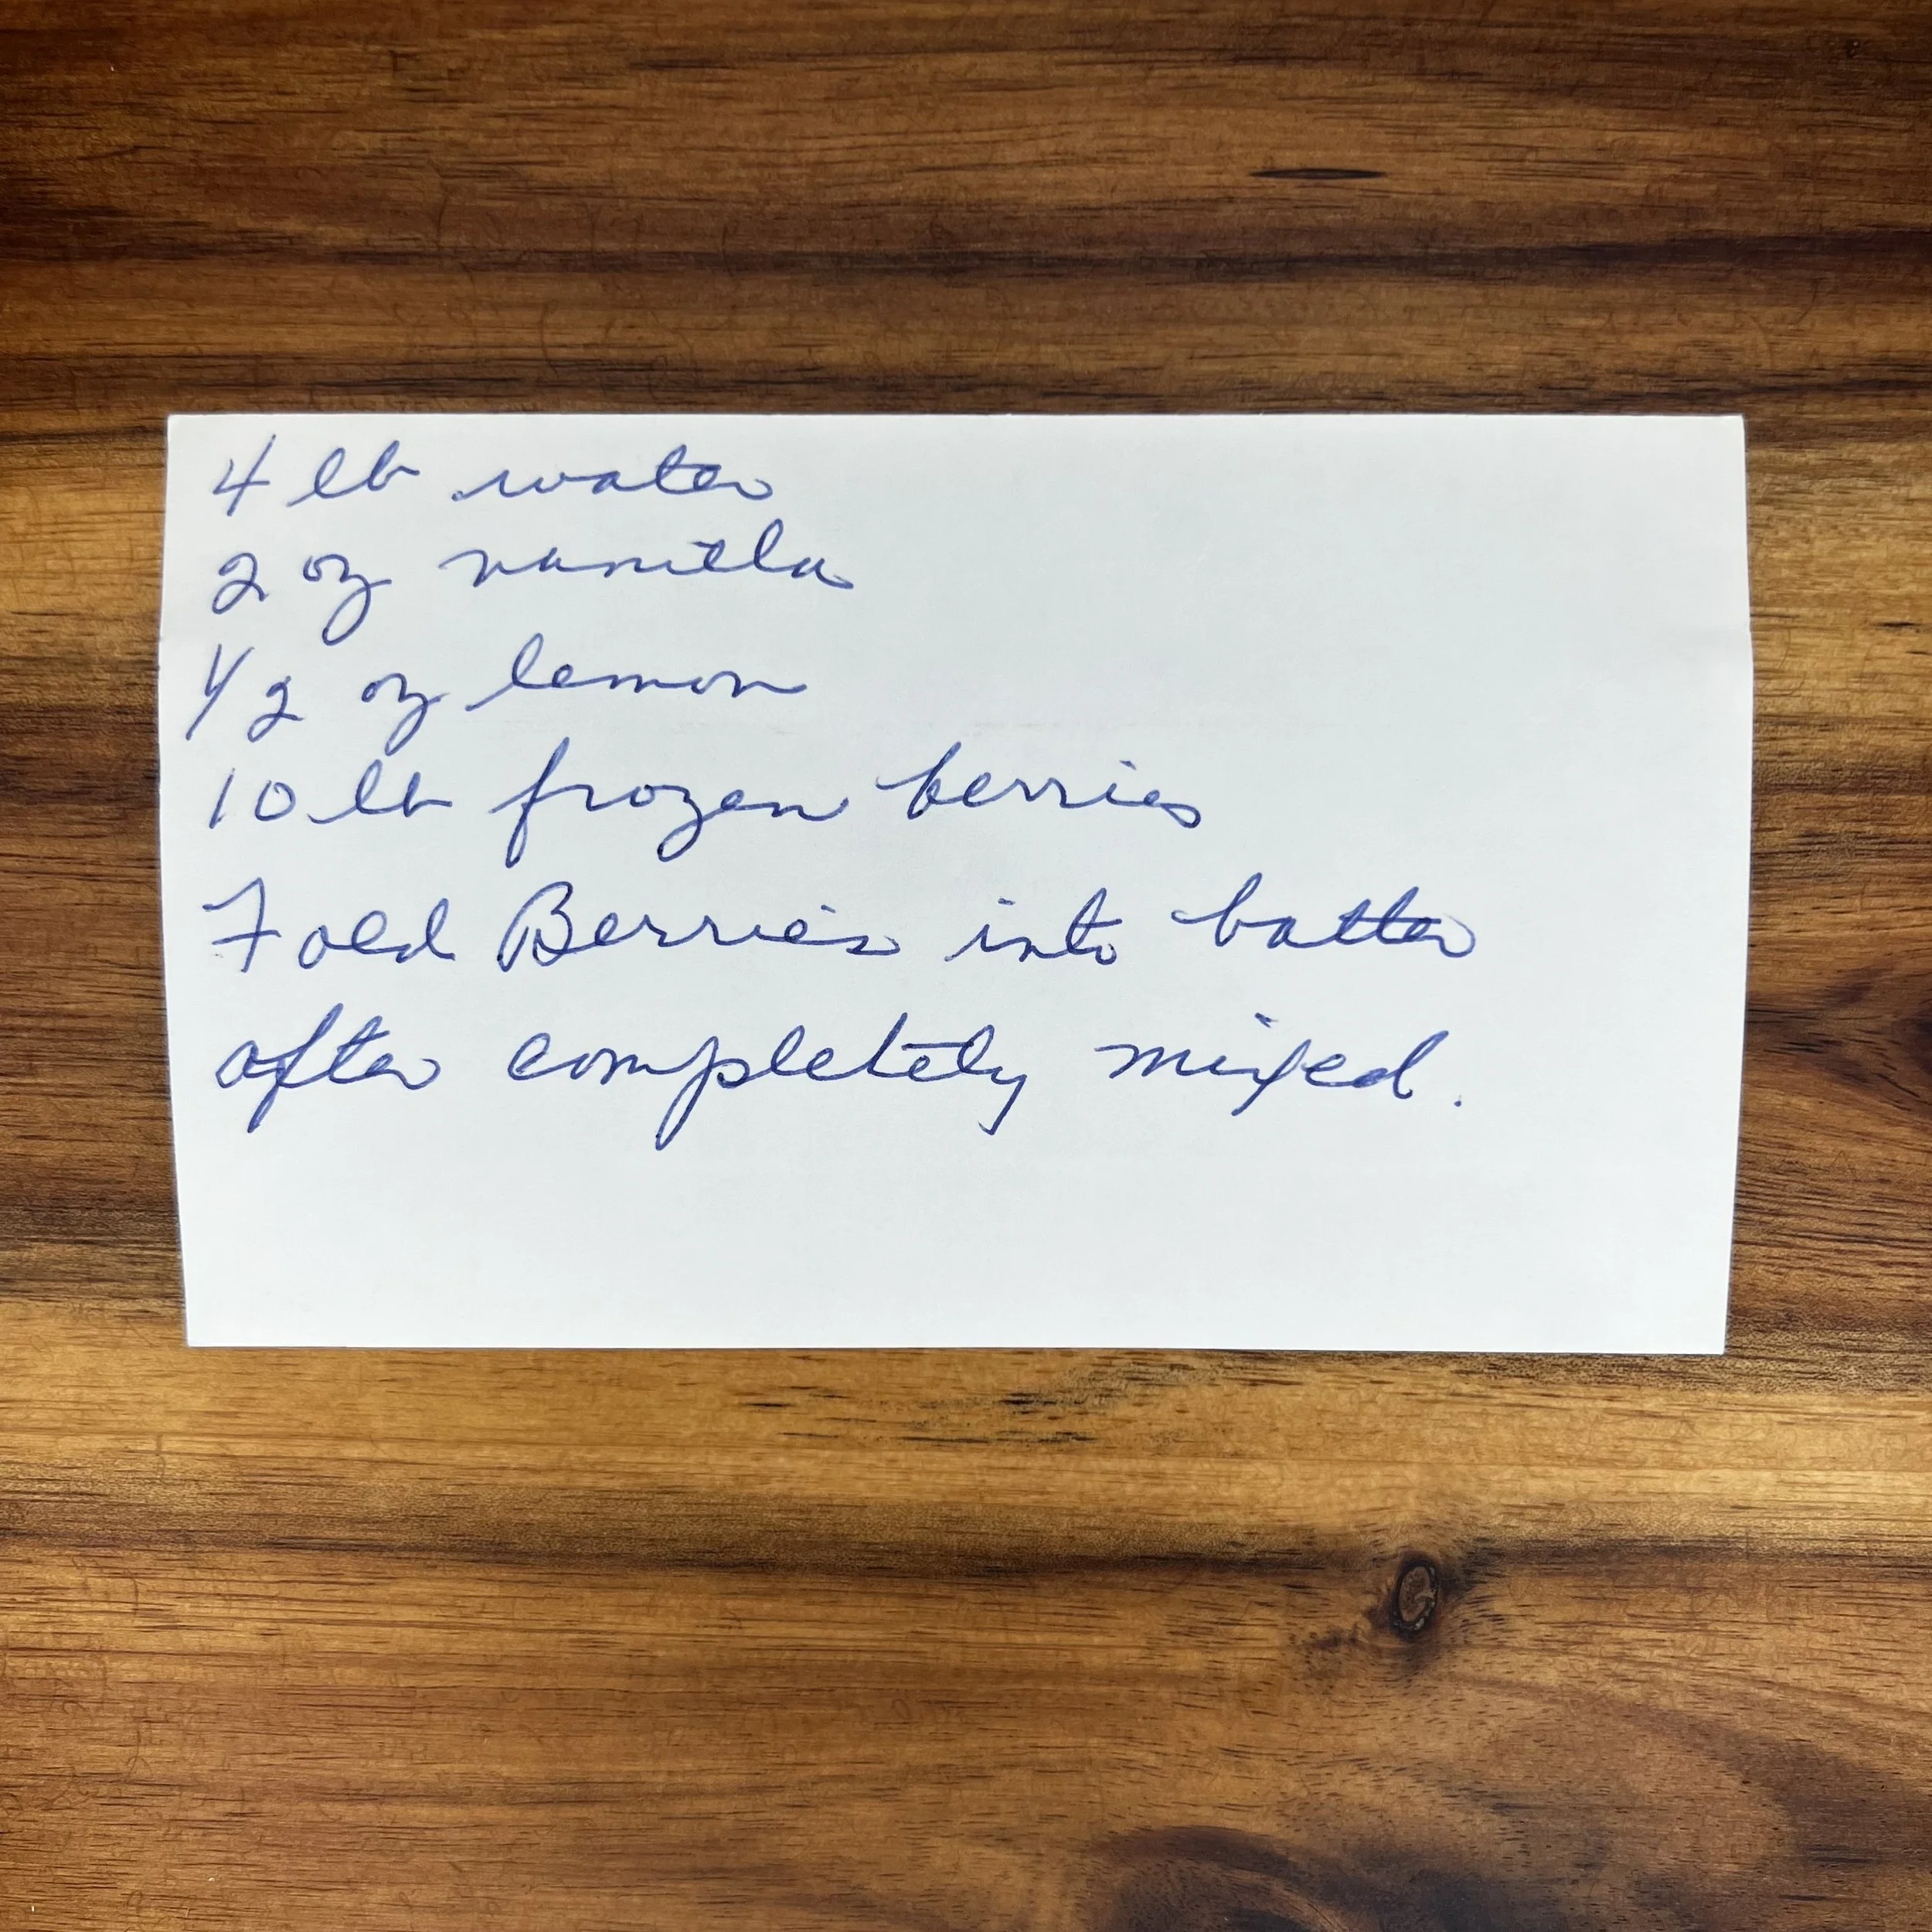 4 lb water
2 oz vanilla
1/2 oz lemon
10 lb frozen berries
Fold Berries into batter
after completely mixed.